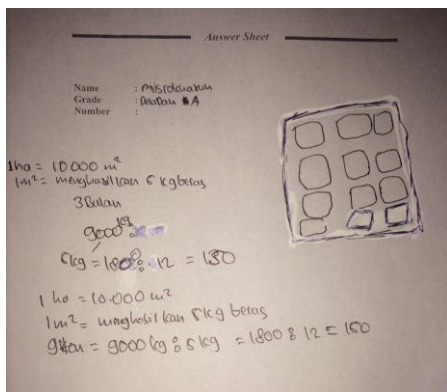 Answer Sheet
Name :
Grade : A
Number :
1ha = 10000 m²
1m² = menghasilkan 5 kg beras
3 Bulan
9000 kg :
5kg = 1800 : 12 = 150
1 ha = 10.000 m²
1m² = menghasilkan 5 kg beras
9 ton = 9000 kg : 5 kg = 1800 : 12 = 150